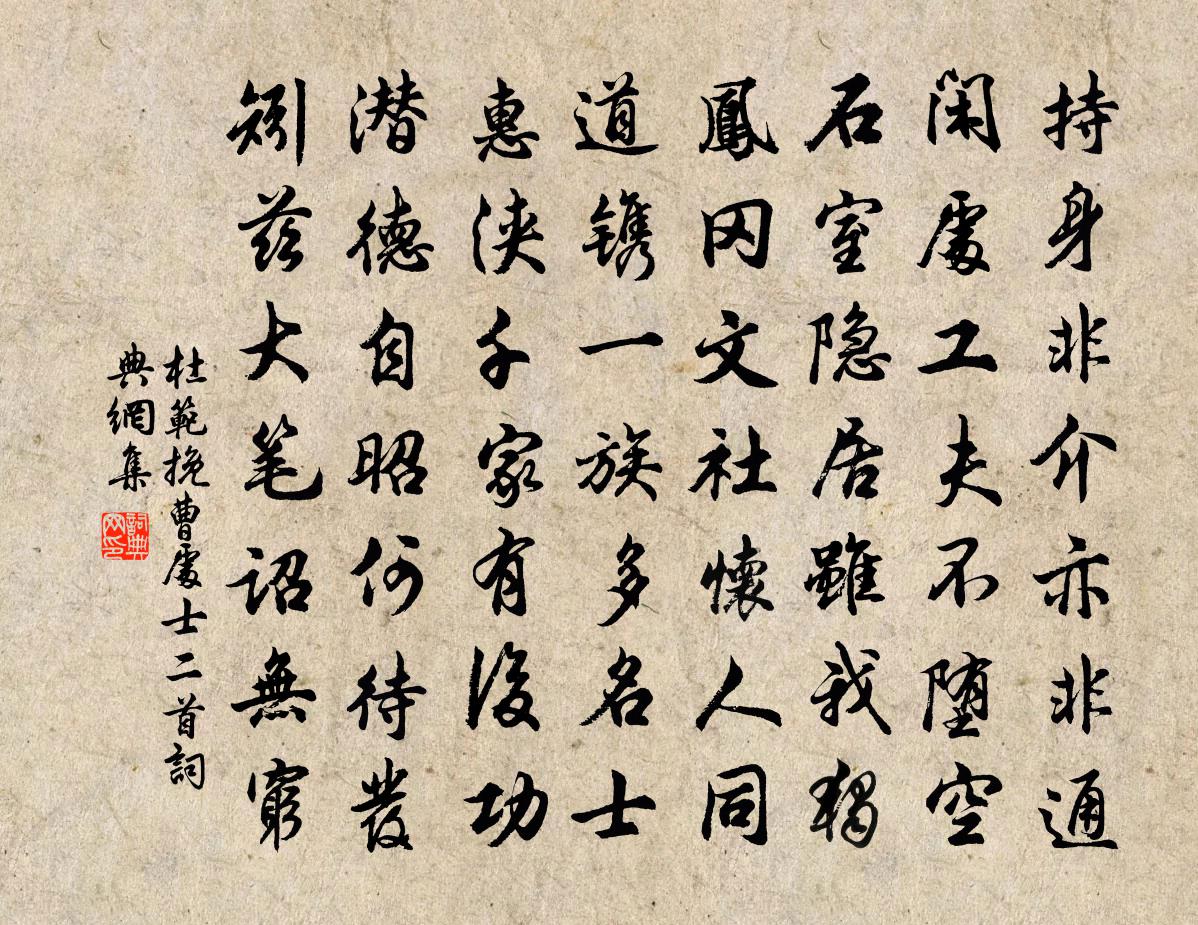 持身非介亦非通
閑處工夫不堕空
石室隐居雖我獨
鳳冈文社懷人同
道镌一族多名士
惠浃千家有後功
潜德自昭何待發
矧兹大笔诏無窮
杜範挽曹處士二首詞
典網集
詞典
网印